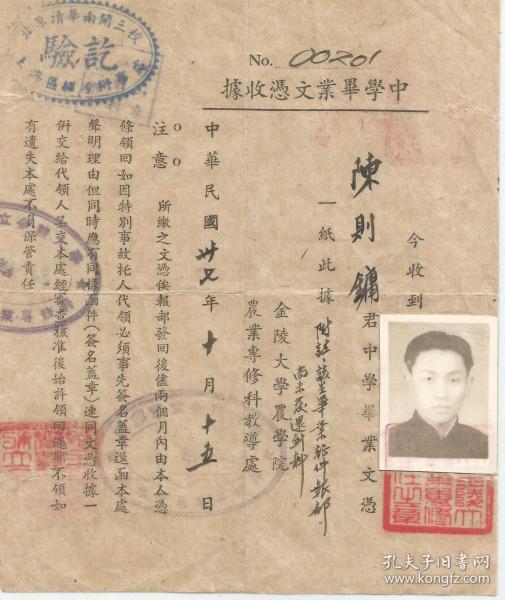 No. 00201
中學畢業文憑收據
今收到
陳則鏞君中學畢業文憑
一紙此據
附註該生畢業証件報部
尚未發還到科
金陵大學農學院
農業專修科教導處
中華民國卅七年十月十五日
注意
所繳之文憑俟報部發回後儘兩個月內由本人憑
條領回如因特別事故托人代領必須事先簽名蓋章逕函本處
聲明理由但同時應有同樣函件(簽名蓋章)連同文憑收據一
併交給代領人呈交本處經審查核准後始許領回過期不領如
有遺失本處不負保管責任
北京清華南開三校
驗訖
孔夫子旧书网
www.kongfz.com